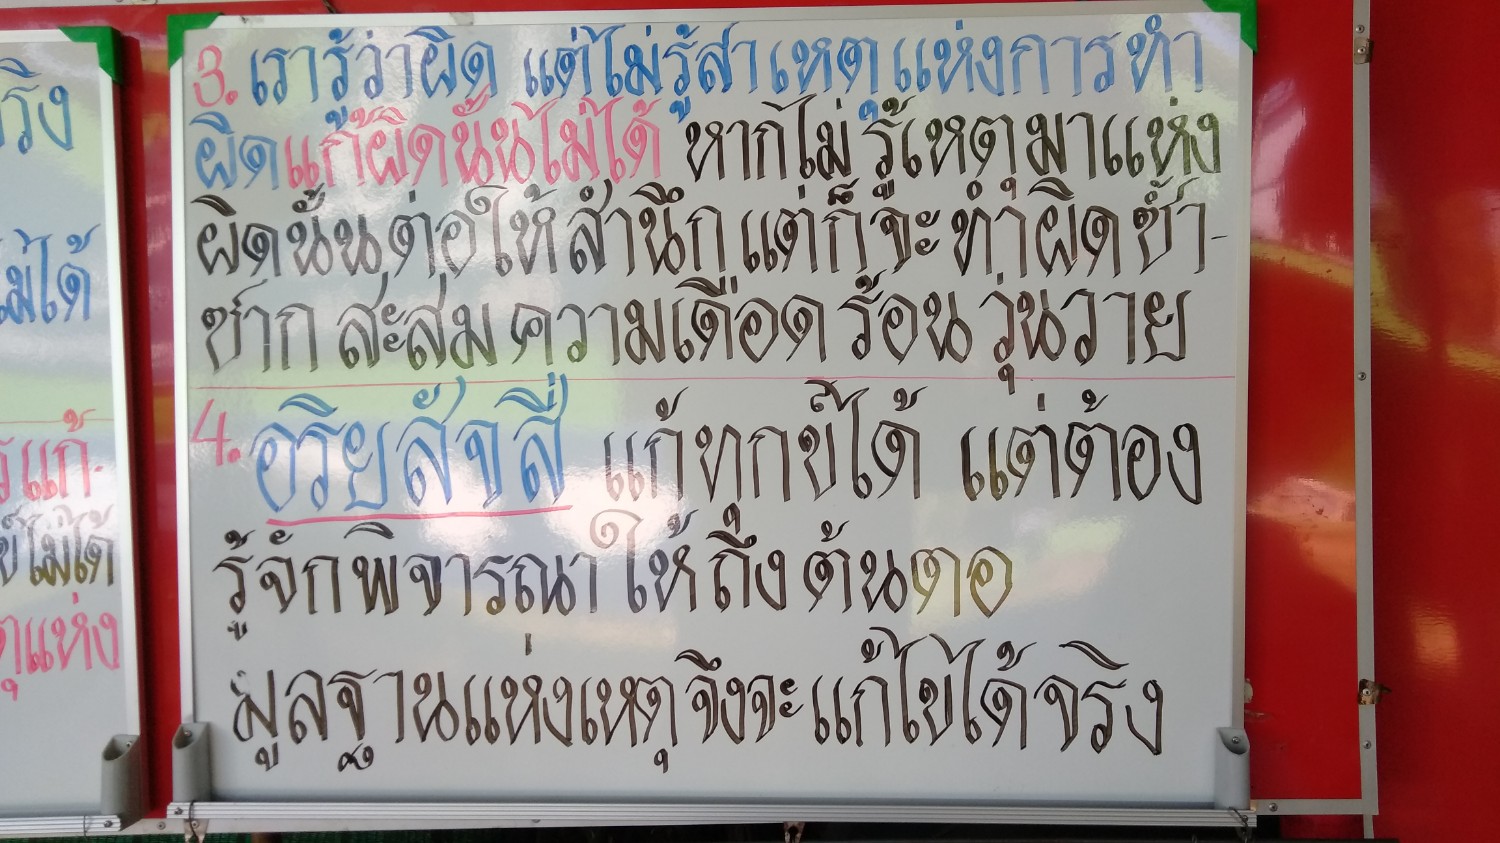 3. เรารู้ว่าผิด แต่ไม่รู้สาเหตุแห่งการทำ
ผิดแก้ผิดนั้นไม่ได้ หากไม่ รู้เหตุมาแห่ง
ผิดนั้นต่อให้สำนึก แต่ก็จะ ทำผิด ซ้ำ-
ซาก สะสม ความเดือด ร้อน วุ่นวาย
4. อริยสัจสี่ แก้ทุกข์ได้ แต่ต้อง
รู้จักพิจารณาให้ถึง ต้นตอ
มูลฐานแห่งเหตุ จึงจะแก้ไขได้จริง
จริง
ไม่ได้
แก้-
ไม่ได้
ตุแห่ง